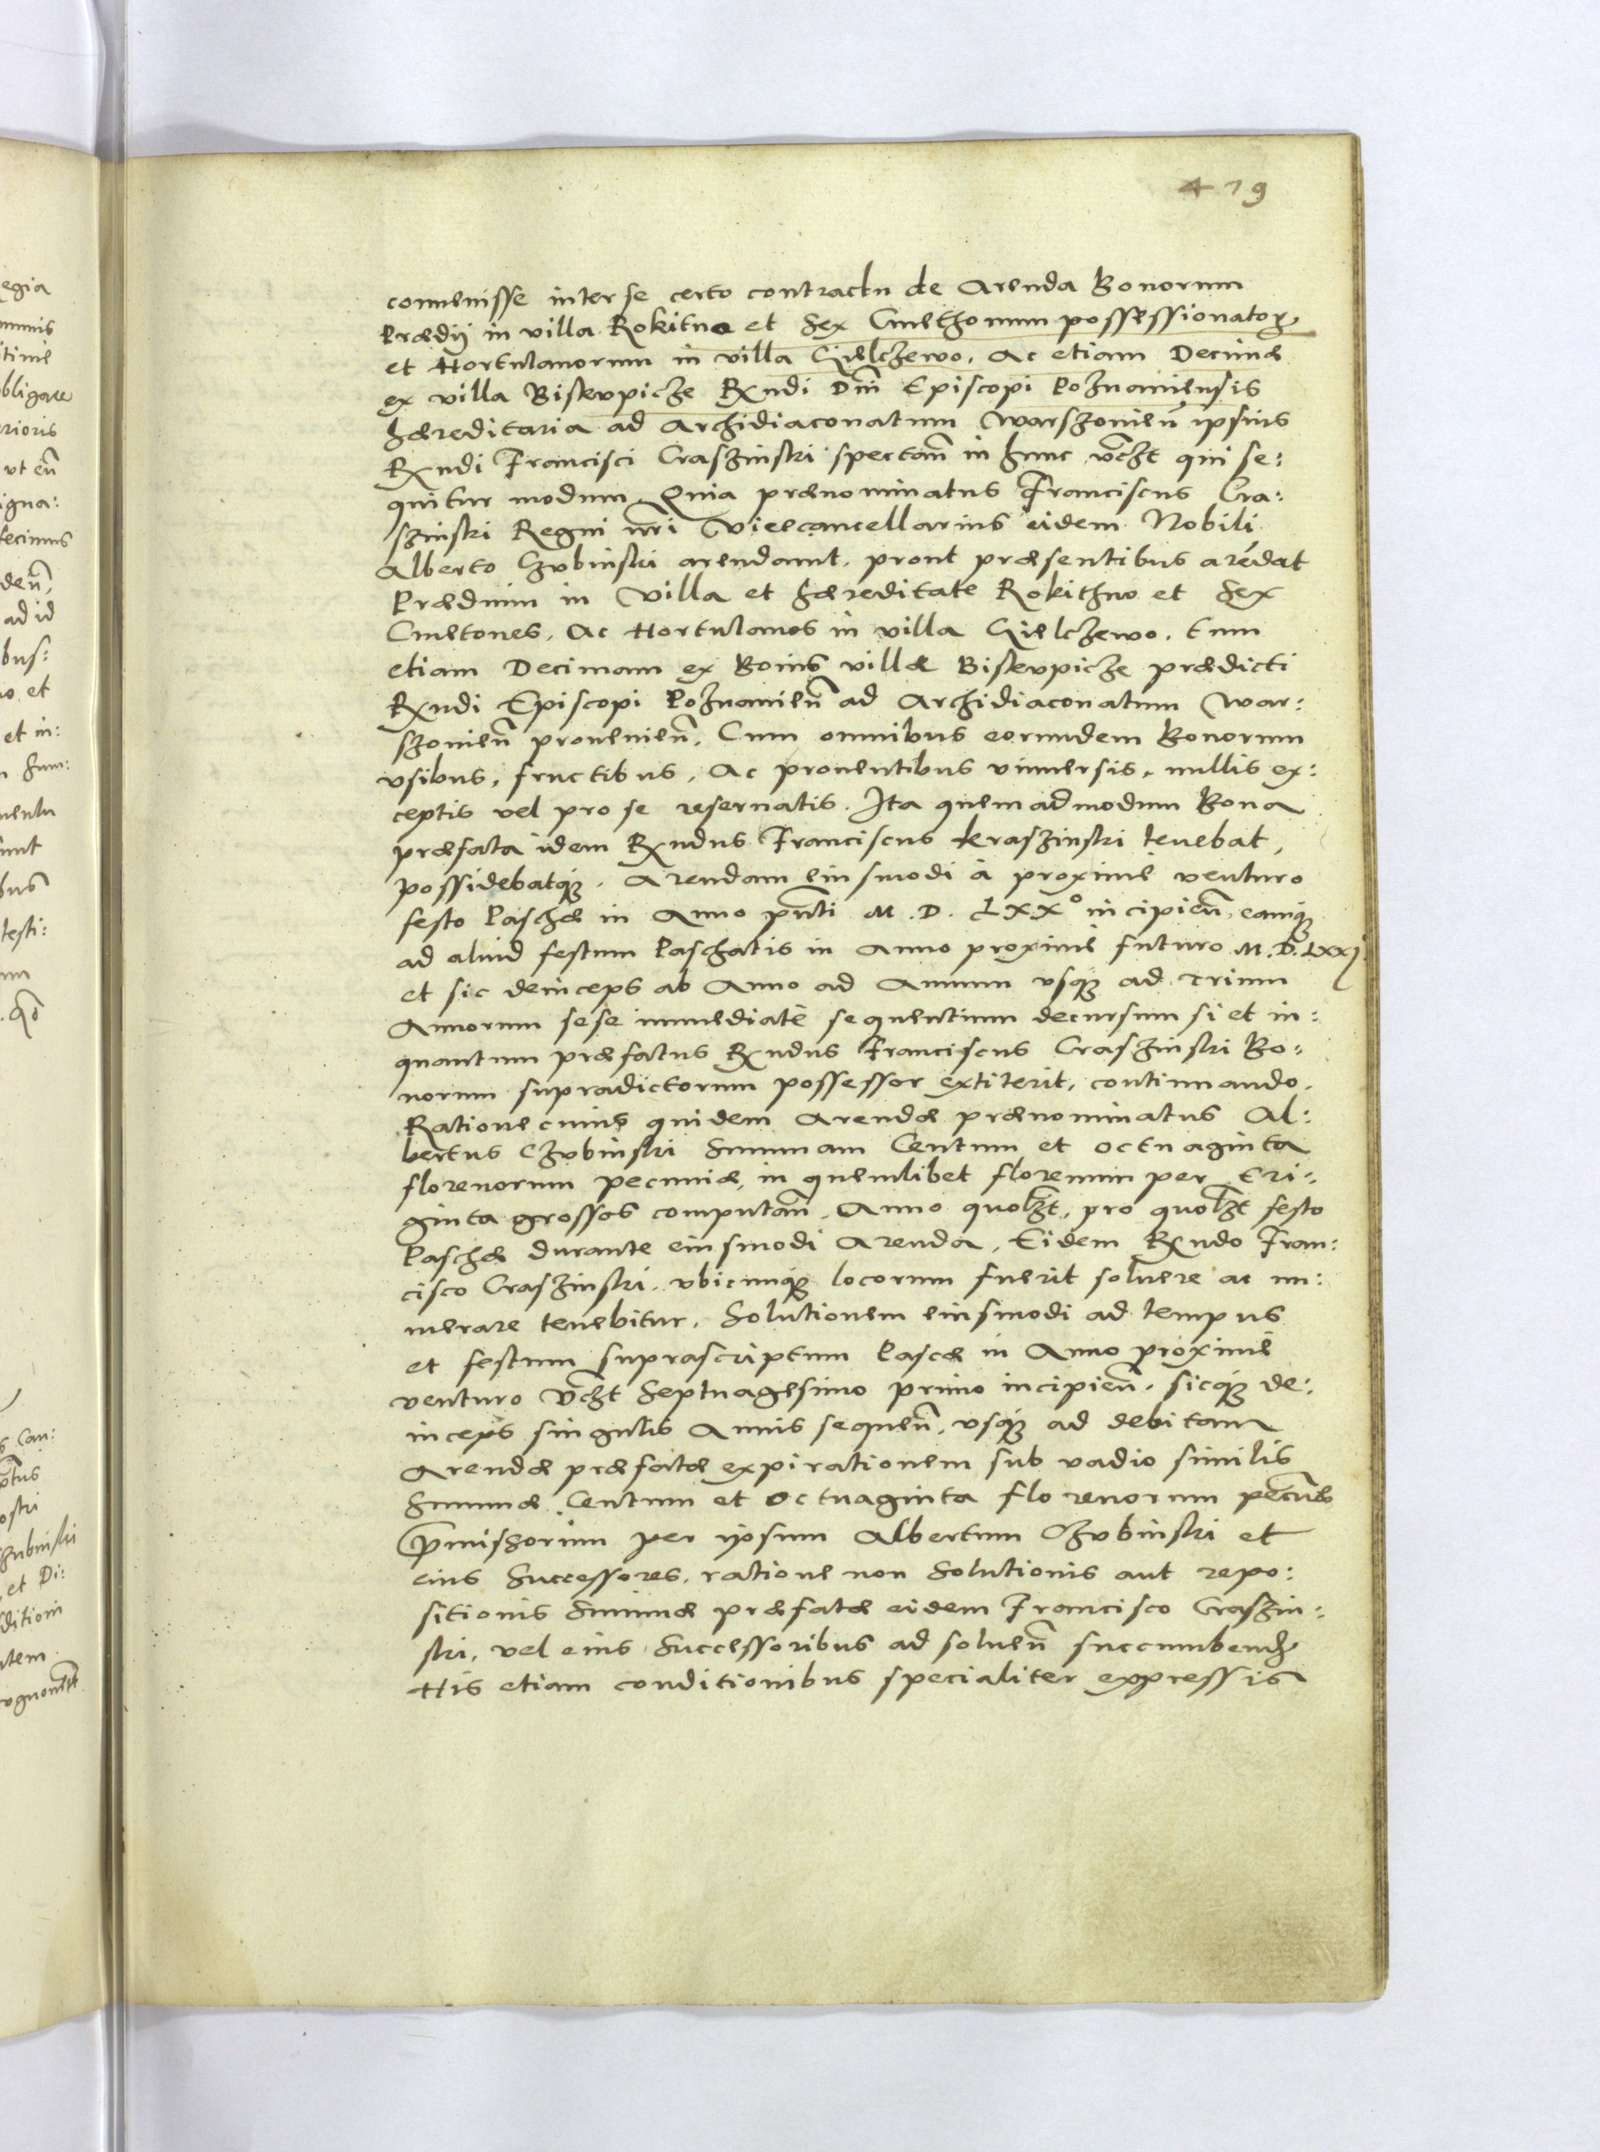 419
conuenisse inter se certo contractu de Arenda Bonorum
Prædij in villa Rokitno et Sex Cmethonum possessionator.
et Hortulanorum in villa Gielczewo, Ac etiam Decimæ
ex villa Biskvpicze Rxndi Dni Episcopi Poznaniensis
hæreditaria ad Archidiaconatum Warszouien ipsius
Rxndi Francisci Craszinski spectan in hunc vdczt qui se:
quitur modum. Quia prænominatus Franciscus Cra:
szinski Regni nri Vicecancellarius eidem Nobili
Alberto Czvbinski arendauit, prout præsentibus arēdat
Prædium in Villa et hæreditate Rokithno et Sex
Cmetones, Ac Hortulanos in villa Gielczewo. tum
etiam Decimam ex Bonis villæ Biskvpicze prædicti
Rxndi Episcopi Poznanien ad Archidiaconatum War:
szouien prouenien. Cum omnibus eorundem Bonorum
vsibus, fructibus, Ac prouentibus vniuersis, nullis ex:
ceptis vel pro se reseruatis. Ita quemadmodum Bona
præfata idem Rxndus Franciscus Kraszinski tenebat,
possidebatq;. Arendam eiusmodi à proximè venturo
festo Paschæ in Anno pnti M.D. LXX° incipien, eamq;
ad aliud festum Paschatis in Anno proximè futuro M.D.LXXj
et sic deinceps ab Anno ad Annum vsq; ad trium
Annorum sese immediatè sequentium decursum si et in:
quantum præfatus Rxndus Franciscus Craszinski Bo:
norum supradictorum possessor extiterit, continuando.
Ratione cuius quidem Arendæ prænominatus Al:
bertus Czvbinski Summam Centum et octuaginta
florenorum pecuniæ, in quemlibet florenum per tri:
ginta grossos computan, Anno quolzt, pro quolzt festo
Paschæ durante eiusmodi Arenda, Eidem Rxndo Fran:
cisco Craszinski, vbicunq; locorum fuerit soluere ac nu:
merare tenebitur. Solutionem eiusmodi ad tempus
et festum suprascriptum Pascæ in Anno proximè
venturo vdczt Septuagesimo primo incipien, sicq; de:
inceps singulis Annis sequen, vsq; ad debitam
Arendæ præfatæ expirationem sub vadio similis
Summæ Centum et Octuaginta florenorum pecuniæ
pmissorum per ipsum Albertum Czvbinski et
eius Successores, ratione non Solutionis aut repo:
sitionis Summæ præfatæ eidem Francisco Craszin:
ski, vel eius Successoribus ad soluen succumbend.
His etiam conditionibus specialiter expressis